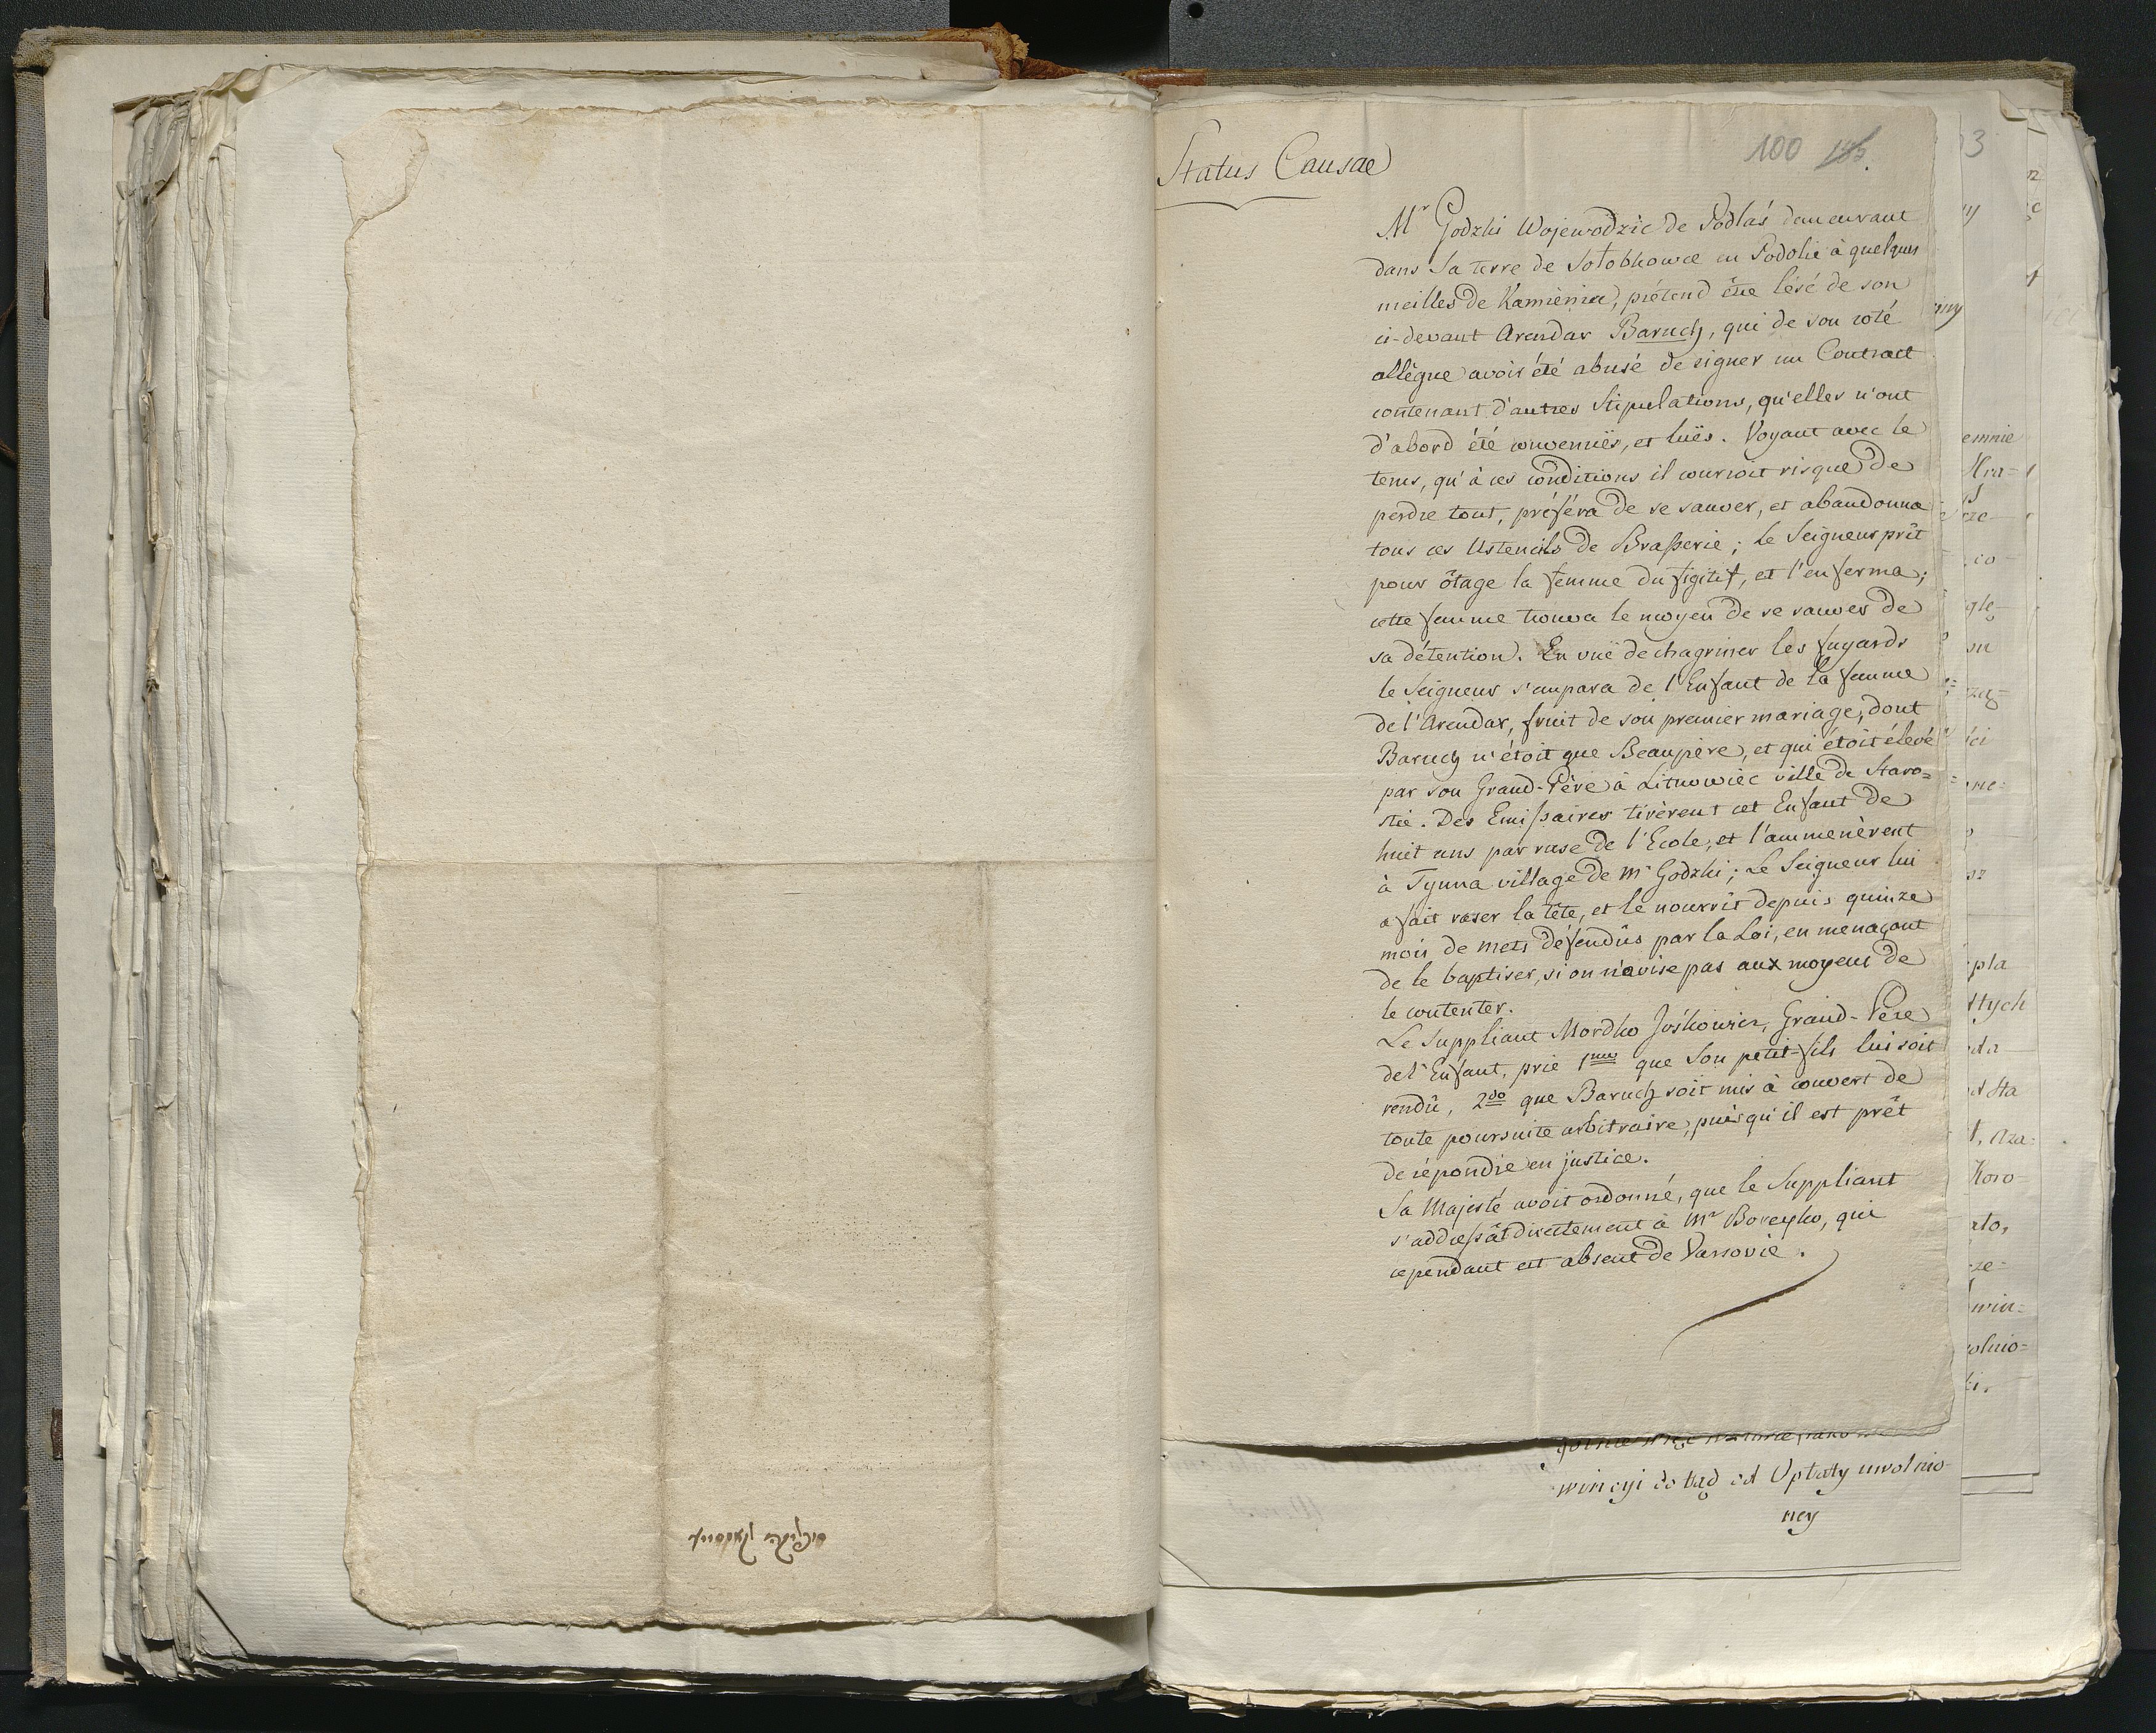 Status Causae
100
Mr Godzki Wojewodzic de Podlaś demeurant
dans Sa terre de Sołobkowce en Podolie à quelques
meilles de Kamiénia, prétend être lésé de son
ci-devant Arendar Baruch, qui de son coté
allègue avoir été abusé de signer un Contract
contenant d'autres Stipulations, qu'elles n'ont
d'abord été convenuës, et luës. Voyant avec le
tems, qu'à ces conditions il couroit risque de
perdre tout, préféra de se sauver, et abandonna
tous ces Ustencils de Brasserie; le Seigneur prît
pour ôtage la femme du figitif, et l'enferma;
cette femme trouva le moyen de se sauver de
sa détention. En vuë de chagriner les fugards
le Seigneur s'empara de l'Enfant de la femme
de l'Arendar, fruit de son premier mariage, dont
Baruch n'étoit que Beaupère, et qui étoit élevé
par son Grand-Père à Litnowiec ville de Staro=
stie. Des Emissaires tirèrent cet Enfant de
huit ans par ruse de l'Ecole, et l'ammenèrent
à Tynna village de Mr Godzki; Le Seigneur lui
a fait raser la tête, et le nourrit depuis quinze
mois de mets défendûs par la Loi, en menaçant
de le baptiser, si on n'avise pas aux moyens de
le contenter.
Le Suppliant Mordko Jośkowicz, Grand-Père
de l'Enfant, prie 1mo que Son petit-fils lui soit
rendû, 2do que Baruch soit mis à couvert de
toute poursuite arbitraire, puisqu'il est prêt
de répondre en justice.
Sa Majesté avoit ordonné, que le Suppliant
s'addressât directement à Mr Boreyko, qui
cependant est absent de Varsovie.
wincyi do tąd od Opłaty uwolnio-
ney